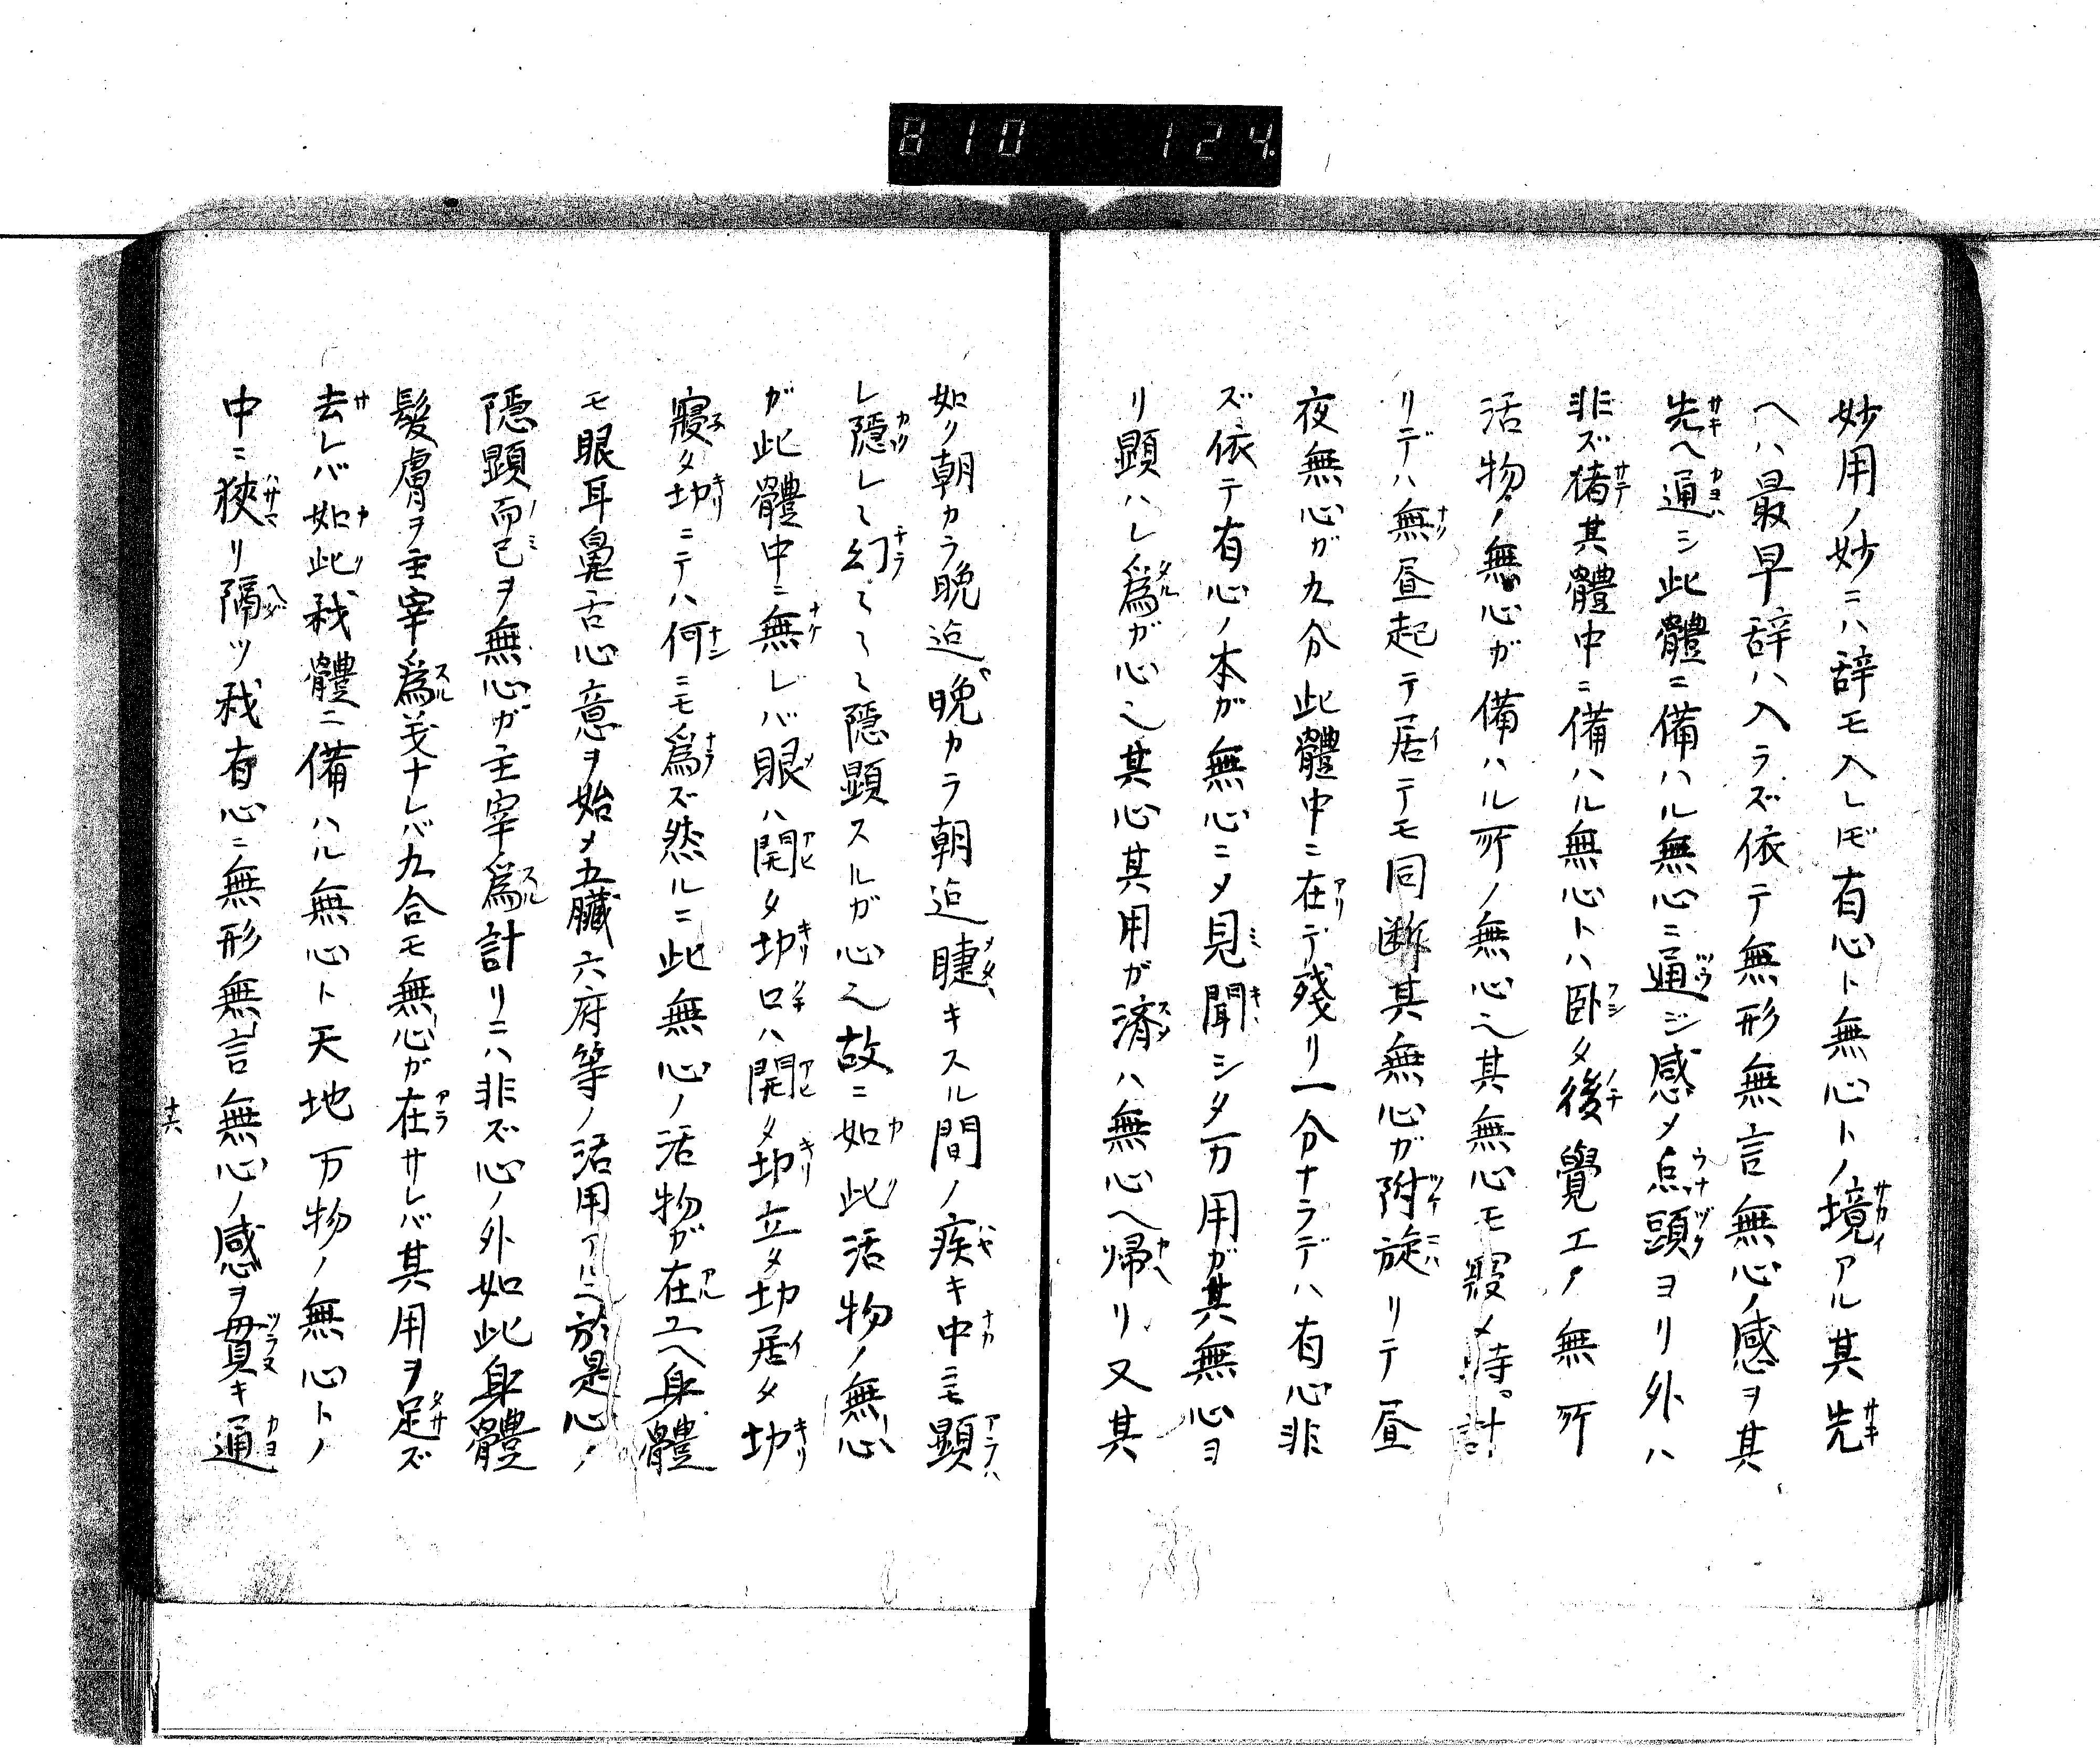 810 124
妙用ノ妙ニハ辞モ入レ𪜈有心ト無心トノ境アル其先
ヘハ最早辞ハ入ラズ依テ無形無言無心ノ感ヲ其
先ヘ通シ此體ニ備ハル無心ニ通ジ感メ点頭ヨリ外ハ
非ズ猪其體中ニ備ハル無心トハ卧タ後覺エノ無所
活物ノ無心ガ備ハル所ノ無心也其無心モ寢メ時計
リデハ無昼起テ居テモ同断其無心ガ附旋リテ昼
夜無心ガ九分此體中ニ在テ残リ一分ナラデハ有心非
ズ依テ有心ノ本ガ無心ニメ見聞シタ万用ガ其無心ヨ
リ顕ハレ為ガ心也其心其用ガ済ハ無心ヘ帰リ又其
如リ朝カラ晩迠晩カラ朝迠睫キスル間ノ疾キ中ニモ顕
レ隠レ〱幻〱〱〱隠顕スルガ心也故ニ如此活物ノ無心
ガ此體中ニ無レバ眼ハ開タ切口ハ開タ切立タ切居タ切
寢タ切ニテハ何ニモ為ズ然ルニ此無心ノ活物ガ在ユヘ身體
モ眼耳鼻舌心意ヲ始メ五臓六府等ノ活用アル也於是心ノ
隠顕而已ヲ無心ガ主宰為計リニハ非ズ心ノ外如此身體
髪膚ヲ主宰ノ為义ナレバ九合モ無心ガ在サレバ其用ヲ足ズ
去レバ如此我體ニ備ハル無心ト天地万物ノ無心トノ
中ニ狹リ隔ツ我有心ニ無形無言無心ノ感ヲ貫キ通
十六